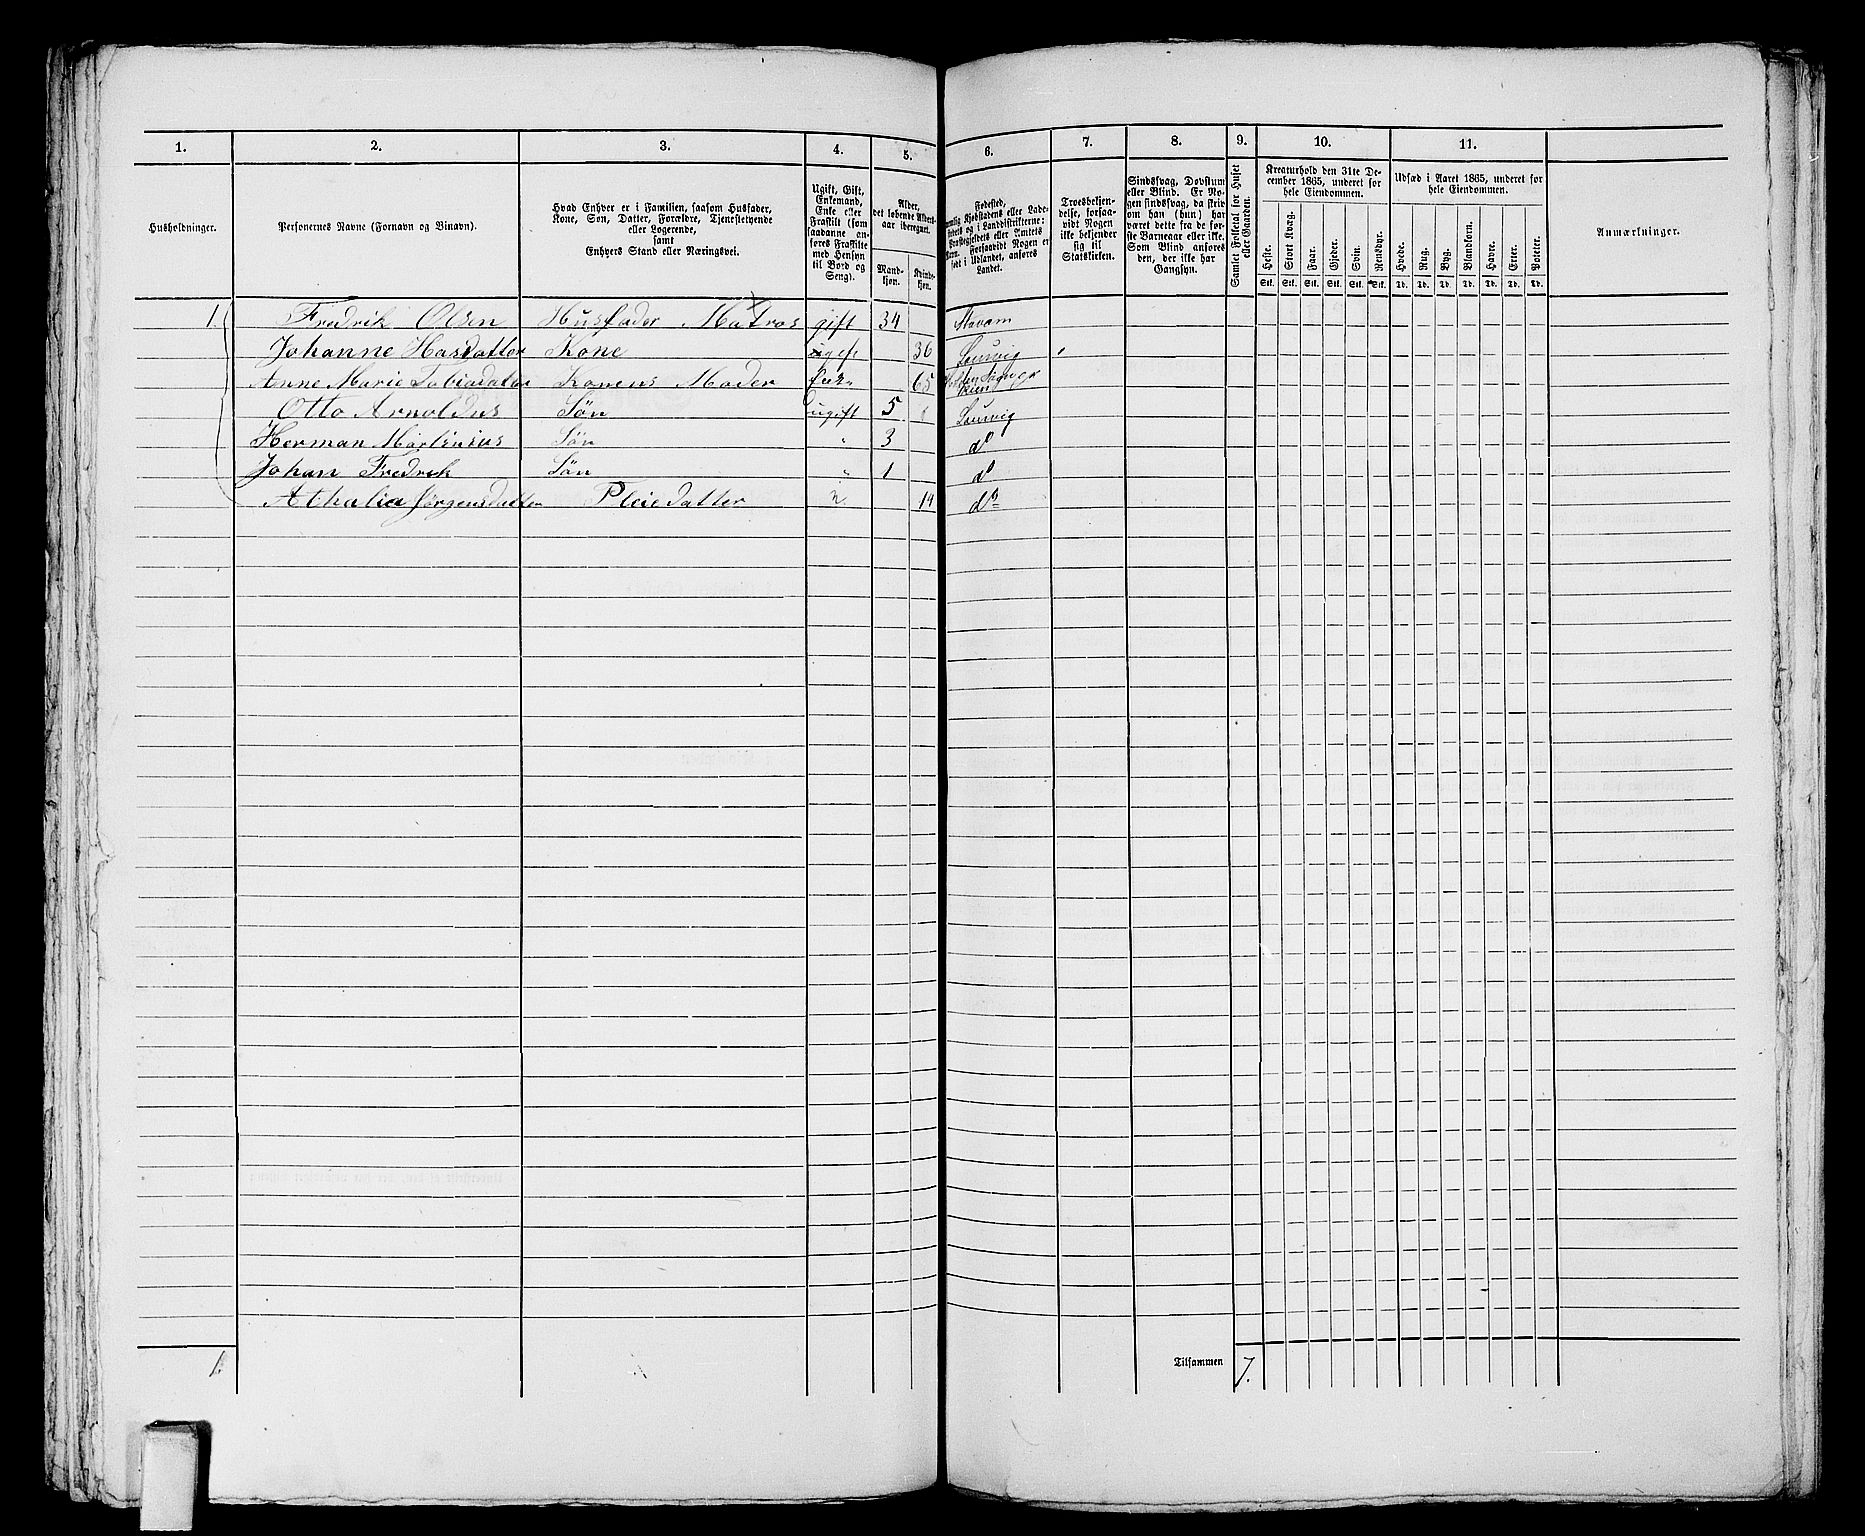 1. 2. 3. 4. 5. 6. 7. 8. 9. 10. 11.
Husholdninger.
Personernes Navne (Fornavn og Binavn).
Hvad Enhver er i Familien, saasom Husfader,
Kone, Søn, Datter, Forældre, Tjenestetyende
eller Logerende,
samt
Enhvers Stand eller Næringsvei.
Ugift, Gift,
Enkemand,
Enke eller
Fraskilt (som
saadanne an-
føres Fraskilte
med Hensyn
til Bord og
Seng).
Alder,
det løbende Alders-
aar iberegnet.
Mand-
kjøn.
Kvinde-
kjøn.
Fødested,
Kjøbstadens eller Lade-
stedets og i Landdistrikterne:
Præstegjeldets eller Amtets
Navn. Forsaavidt Nogen er
født i Udlandet, anføres
Landet.
Troesbekjen-
delse, forsaa-
vidt Nogen
ikke bekjender
sig til
Statskirken.
Sindssvag, Døvstum
eller Blind. Er No-
gen sindssvag, da skriv
om han (hun) har
været dette fra de før-
ste Barneaar eller ikke.
Som Blind anføres
den, der ikke har
Gangsyn.
Samlet Folketal for Huset
eller Gaarden.
Kreaturhold den 31te De-
cember 1865, underet for
hele Eiendommen.
Heste. Stort Kvæg. Faar. Gjeder. Svin. Rensdyr.
Stk. Stk. Stk. Stk. Stk. Stk.
Udsæd i Aaret 1865, underet for
hele Eiendommen.
Hvede. Rug. Byg. Blandkorn. Havre. Erter. Poteter.
Td. Td. Td. Td. Td. Td. Td.
Anmærkninger.
1. Fredrik Olsen Husfader Matros gift 34 Staværn
Johanne Hasdatter Kone 36 Lourvig
Anne Marie Tobiadatter Konens Moder 65
Otto Arnoldus Søn ugift 5 Lourvig
Herman Martinius Søn " 3 do
Johan Fredrik Søn " 1 do
Athalia Jørgensdatter Pleiedatter 14 do
1. Tilsammen 7.